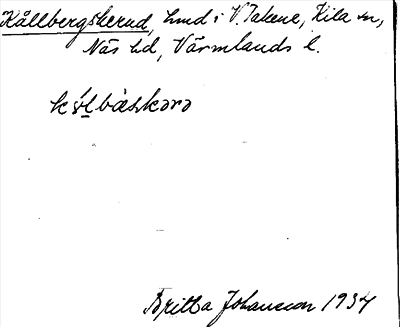 Kållbergskerud, hmd i V. Takene, Kila sn,
Näs hd, Värmlands l.
Britta Johansson 1934